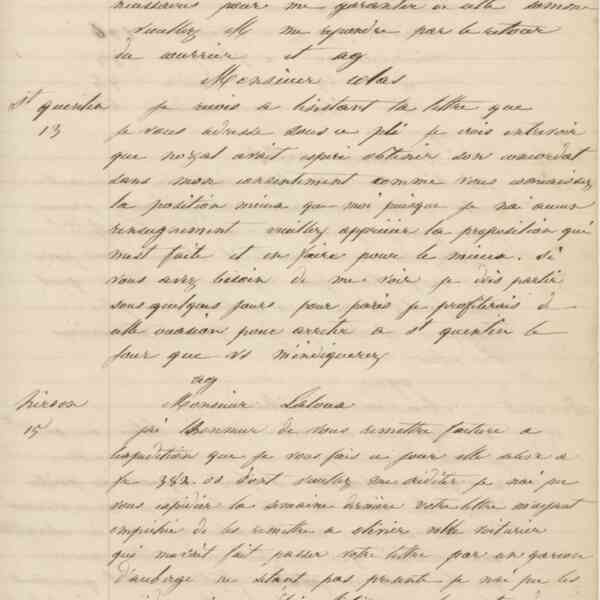 nécessaires pour me garantir de cette somme
veuillez M me repondre par le retour
du courrier et ag
Monsieur colas
St quentin
13
je recois a linstant la lettre que
je vous adresse sous ce pli je crois entrevoir
que noyal avait espéré obtenir son concordat
sans mon consentement comme vous connaissez
la position mieux que moi puisque je nai aucun
renseignement veuillez apprécier la proposition qui
mest faite et en faire pour le mieux. si
vous avez besoin de me voir je dois partir
sous quelques jours pour paris je profiterais de
cette occasion pour arreter a st quentin le
jour que vs mindiquerez
ag
hirson
15
Monsieur Laloua
jai lhonneur de vous remettre facture a
lexpedition que je vous fais ce jour elle seleve a
fr 382.05 dont veuillez me créditer je nai pu
vous expédier la semaine dernière votre lettre mayant
empéché de les remettre a olivier votre voiturier
qui mavait fait passer votre lettre par un garcon
d'auberge ne setant pas presenté je nai pu les